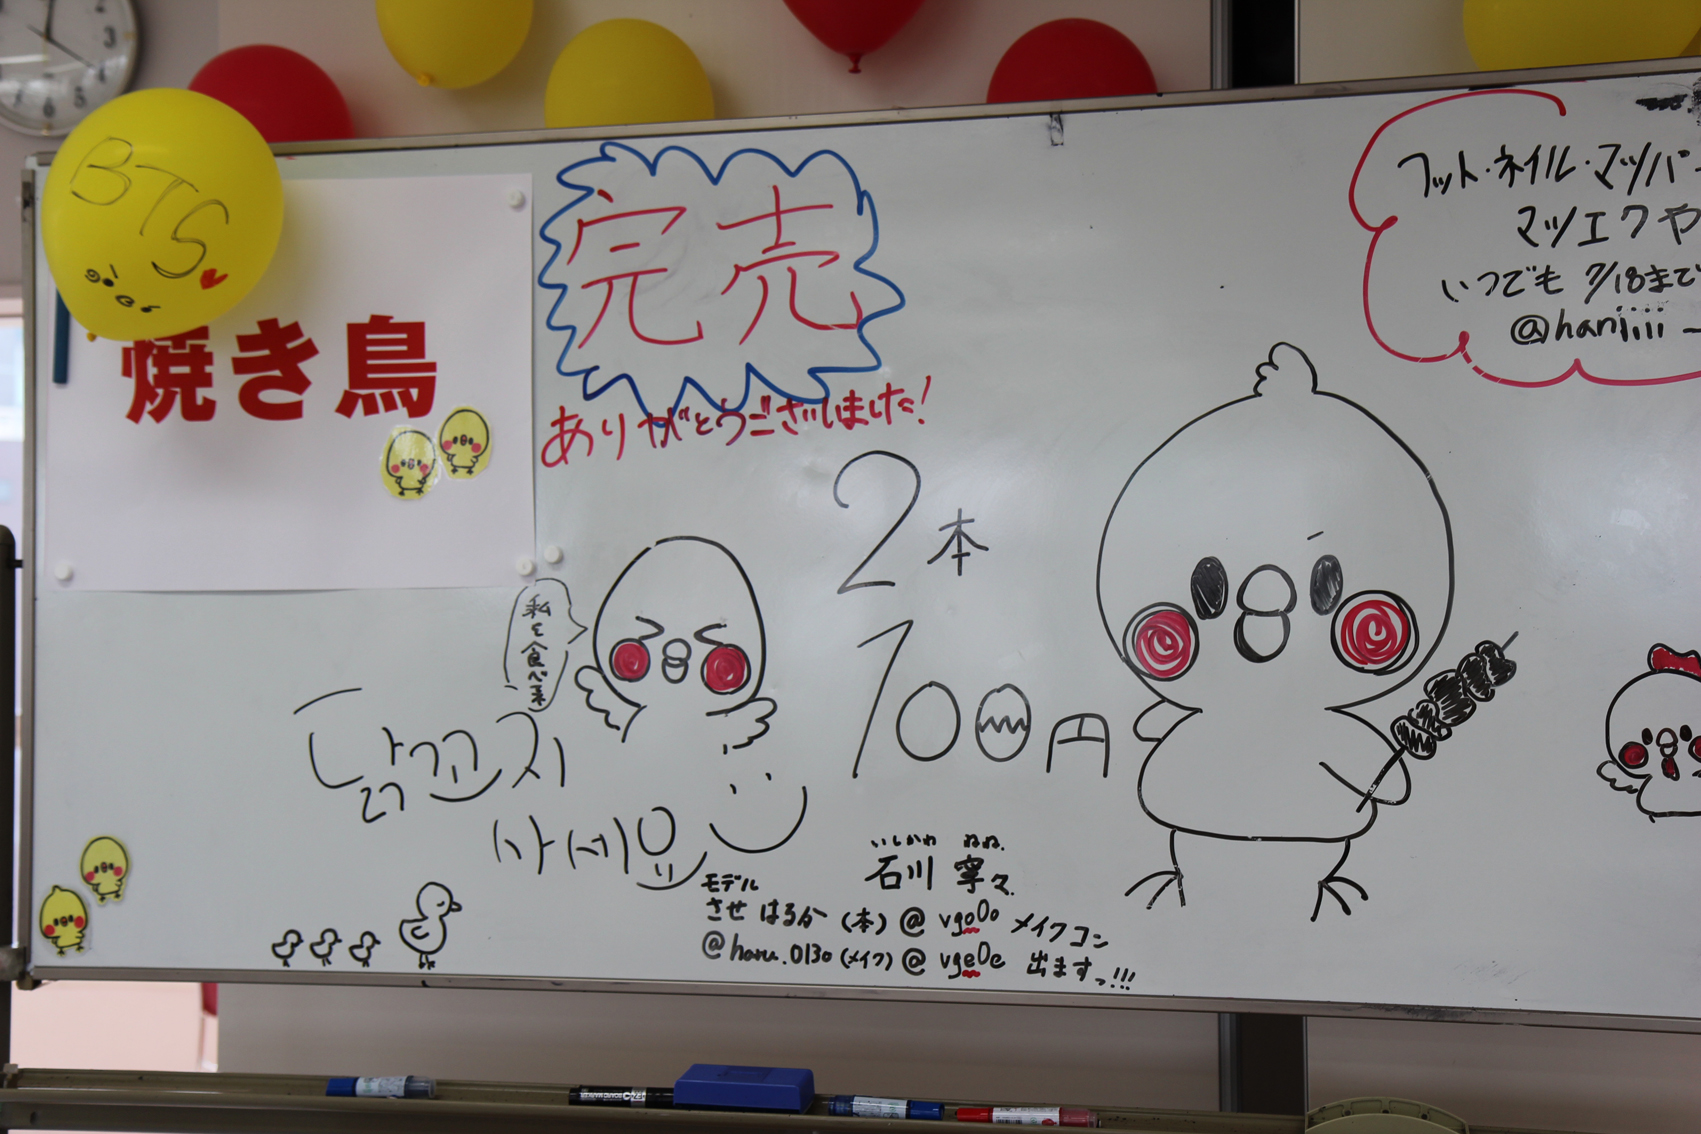 BTS
焼き鳥
完売
ありがとうございました!
2本
100円
私を食べて
닭꼬치
사세요
フット・ネイル・マツパー
マツエクや
いつでも 7/18まで
@hanjiiii
いしかわ ねね.
石川 寧々.
モデル
させ はるか (本) @ vgo0o メイクコン
@haru.0130 (メイク) @ vge0e 出ますっ!!!
3
5
6